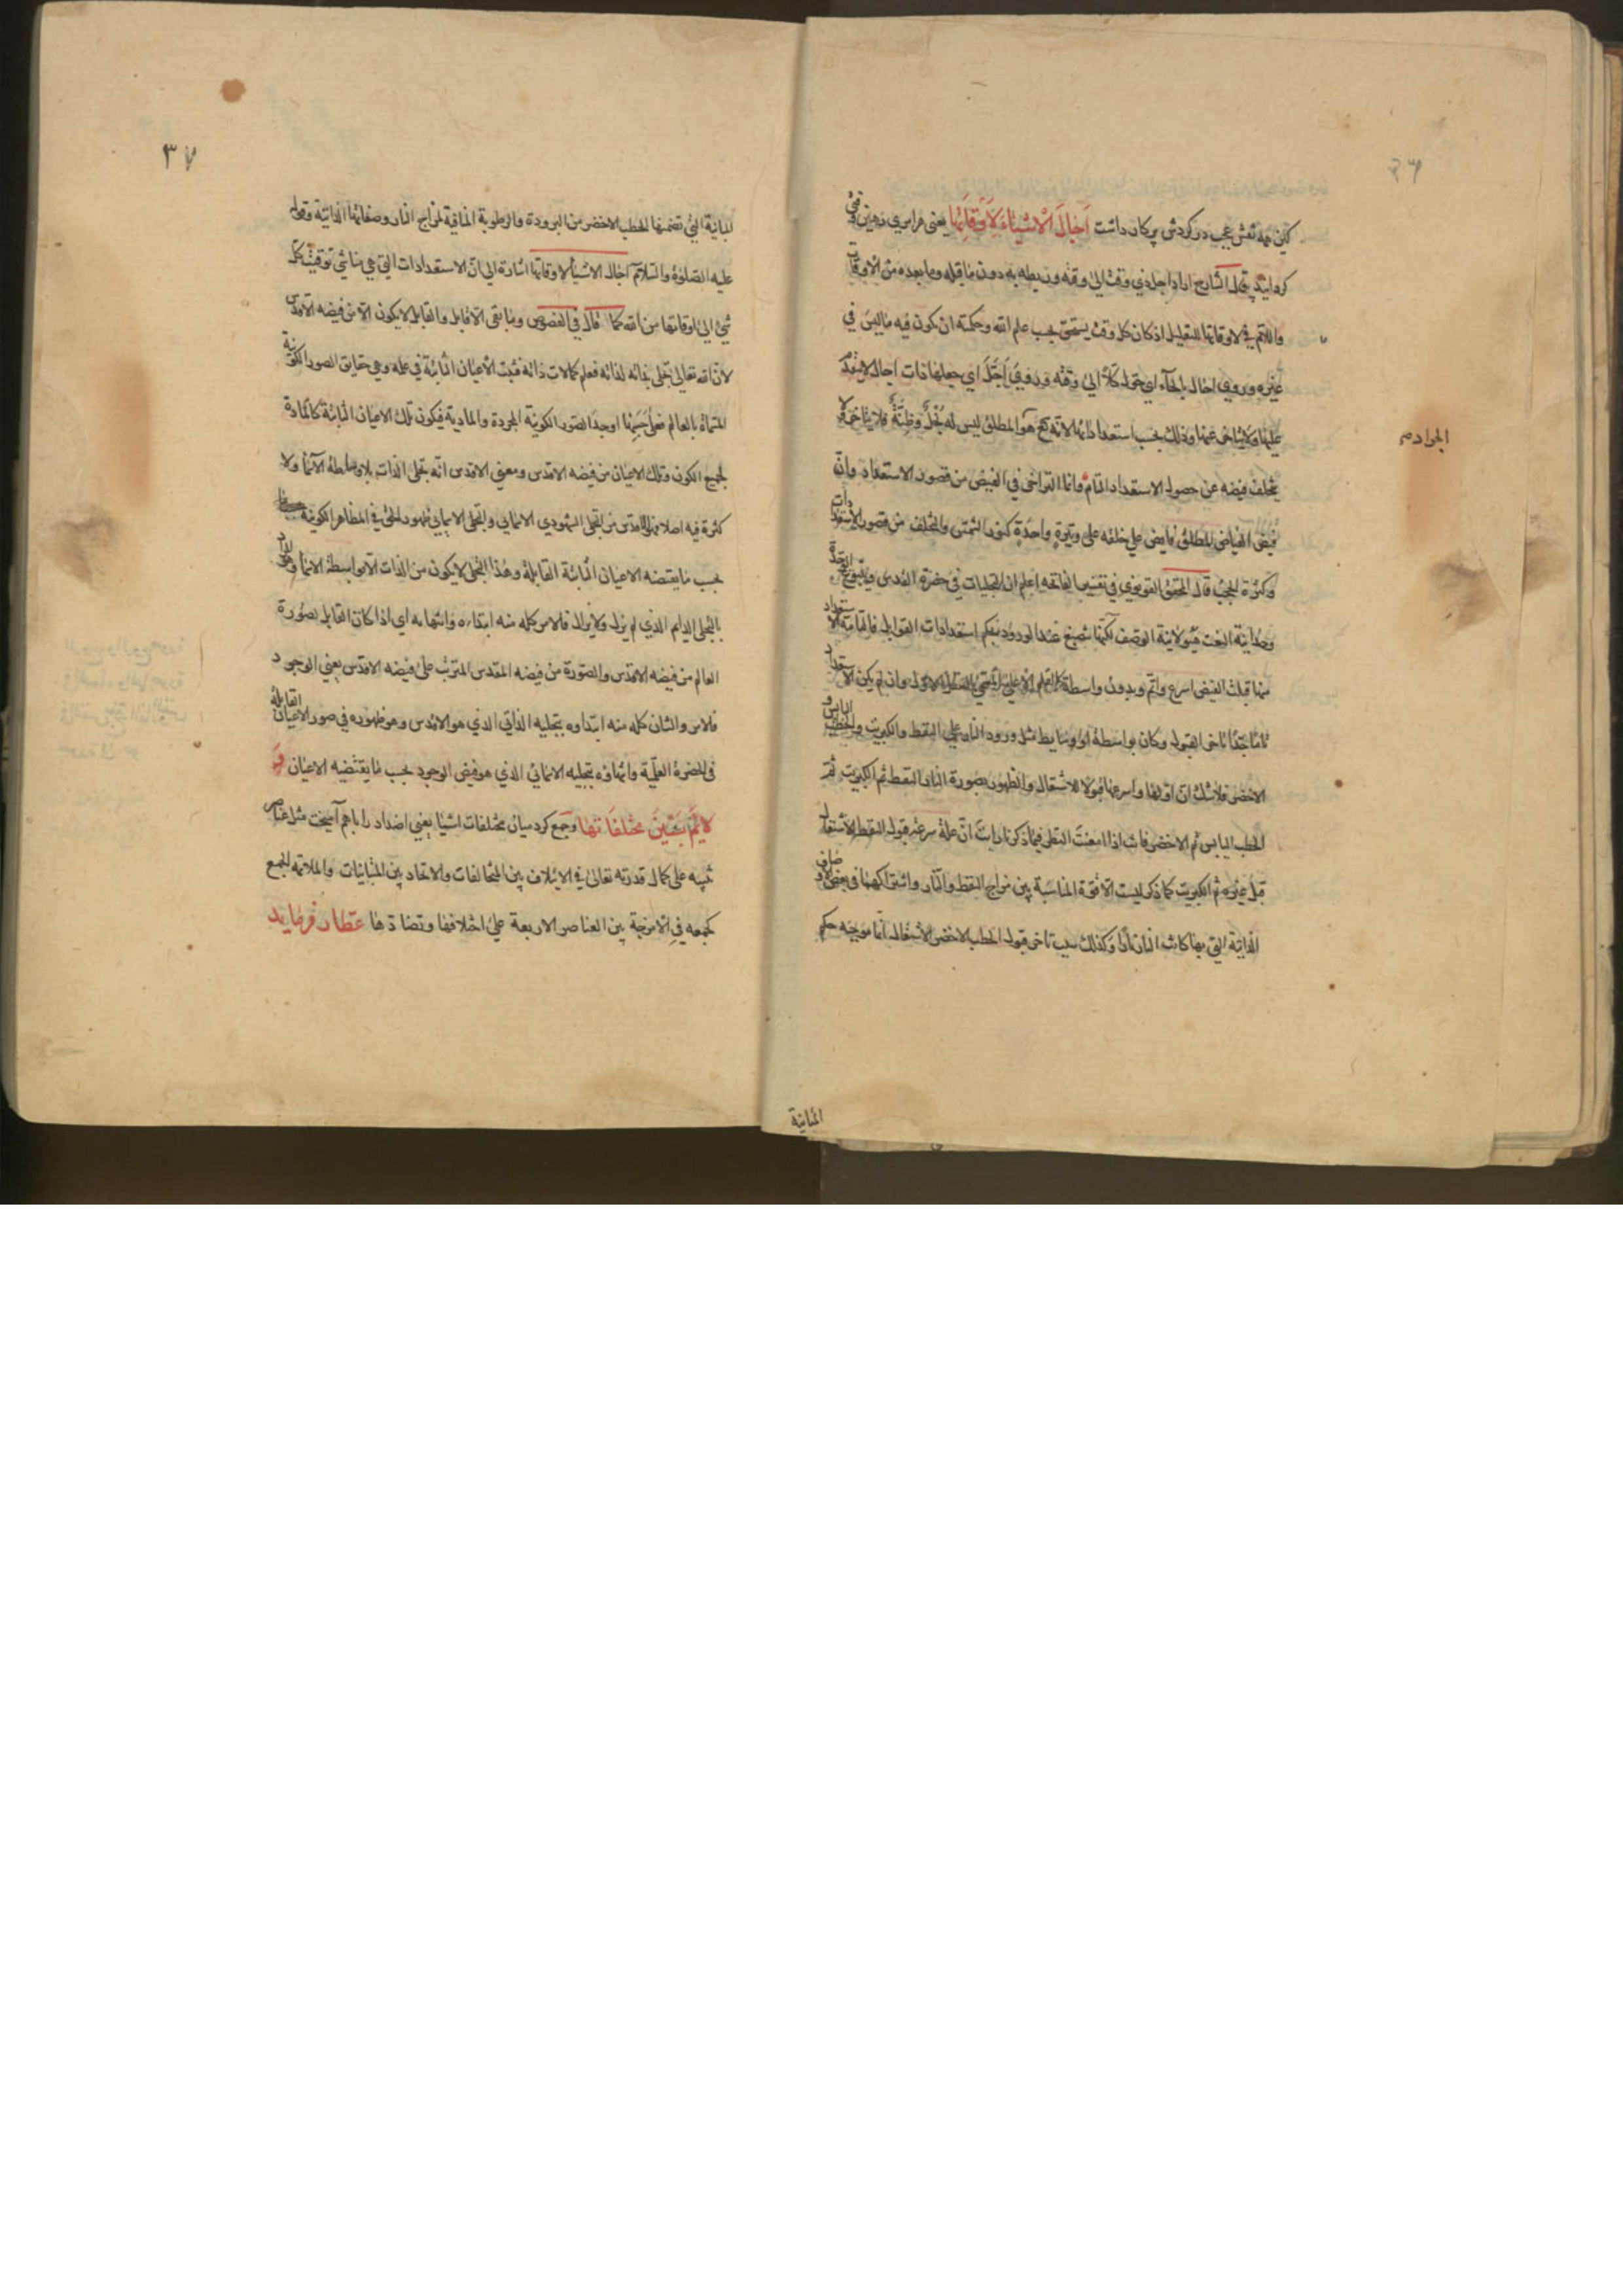 ٣٦
كين همه نقش عجب در كردش پركار داشت اَحَالَ الْاَشْيَاءَ لِاَوْقَاتِهَا يعنى هر امرى رهين وقتى
كردانيد قال الشارح اراد اجل ذي وقت الى وقته وربطه به دون ما قبله وما بعده من الاوقات
واللام في لاوقاتها للتعليل اذ كان كل وقت يستحق بحسب علم الله وحكمته ان يكون فيه ما ليس في
غيره وروي احال بالحاء اي حوّل كلاً الى وقته وروي اَجَّلَ اي جعلها ذات اجال لا يتقدم
عليها ولا يتاخر عنها وذلك بحسب استعداداتها لانه هو المطلق ليس له بخل وضنّة فلا يتاخر ولا
يتخلف فيضه عن حصول الاستعداد التام وانما التراخي في الفيض من قصور الاستعداد وان
الجواد
فيض الفياض المطلق فايض علي خلقه على وتيرة واحدة كنور الشمس والتخلف من قصور الاستعدادات
وكثرة الحجب قال المحقق القونوي في تفسير الفاتحة اعلم ان التجليات في حضرة القدس وينبوع الوحدة
وحدانية النعت هيولانية الوصف لكنها تنصبغ عند الورود بحكم استعدادات القوابل فالتامة الاستعداد
منها قبلت الفيض اسرع واتم وبدون واسطة كالقلم الاعلى المسمى بالعقل الاول وان لم يكن الاستعداد
تاما جدا تاخر القبول وكان بواسطة او وسايط مثل ورود النار على النفط والكبريت والحطب اليابس و
الاخضر فلا شك ان اولها واسرعها قبولا للاشتعال والظهور بصورة النار النفط ثم الكبريت ثم
الحطب اليابس ثم الاخضر فانت اذا امعنت النظر فيما ذكرنا رايت ان علة سرعة قبول النفط الاشتعال
قبل غيره ثم الكبريت كما ذكر ليست الا قوة المناسبة بين مزاج النفط والنار واشتراكهما في بعض الاوصاف
الذاتية التي بها كانت النار نارا وكذلك سبب تاخر قبول الحطب الاخضر الاشتعال انما موجبه حكم
المباينة
٣٧
المباينة التي تضمنها الحطب الاخضر من البرودة والرطوبة المنافية لمزاج النار وصفاتها الذاتية وقوله
عليه الصلوة والسلام احال الاشيأ لاوقاتها اشارة الى ان الاستعدادات التي هي مناشي توقيت كل
شئ الى اوقاتها من الله كما قال في الفصوص وما بقي الا قابل والقابل لا يكون الا من فيضه الاقدس
لان الله تعالى تجلى بذاته لذاته فعلم كمالات ذاته فثبت الاعيان الثابتة في علمه وهي حقايق الصور الكونية
المسماة بالعالم فعلى حسبها اوجد الصور الكونية المجردة والمادية فيكون تلك الاعيان الثابتة كالمادة
لجميع الكون وتلك الاعيان من فيضه الاقدس ومعنى الاقدس انه تجلى الذات بلا واسطة الاسما ولا
كثرة فيه اصلا فهو اقدس من التجلى الشهودي الاسمائي والتجلى الاسمائي ظهور الحق في المظاهر الكونية
بحسب ما يقتضه الاعيان الثابتة القابلة وهذا التجلى لا يكون من الذات الا بواسطة الاسما وهو المراد
بالتجلى الدايم الذي لم يزل ولا يزال فالامر كله منه ابتداءه وانتهاءه اي اذا كان القابل بصورة
العالم من فيضه الاقدس والصورة من فيضه المقدس المترتب على فيضه الاقدس يعني الوجود
فلامر والشان كله منه ابتداوه بتجليه الذاتي الذي هو الاقدس وهو ظهوره في صور الاعيان القابلة
في الحضرة العلمية وانتهاؤه بتجليه الاسمائي الذي هو فيض الوجود بحسب ما يقتضيه الاعيان وَ
لاءَمَ بَيْنَ مُخْتَلِفَاتِهَا وجمع كرد ميان مختلفات اشيا يعني اضداد را باهم آميخت مثل عناصر
تنبيه على كمال قدرته تعالى في الايتلاف بين المخالفات والاتحاد بين المتباينات والملائمة لجمع
كجمعه في الامزجة بين العناصر الاربعة على اختلافها وتضادها عطار فرمايد